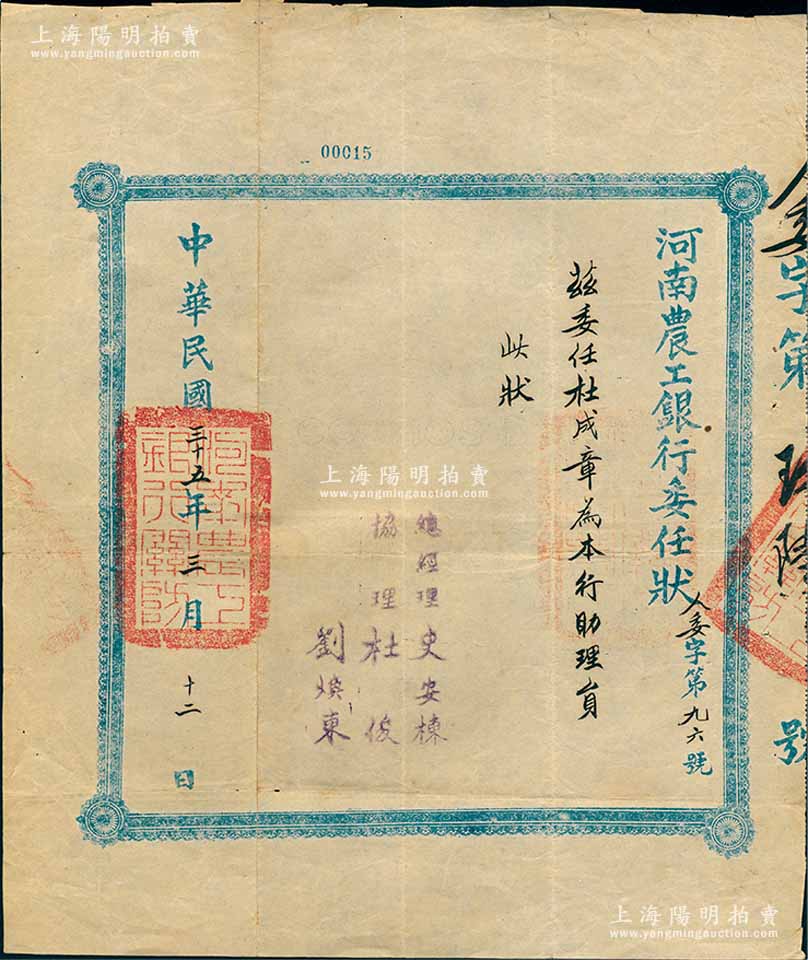 上海陽明拍賣
www.yangmingauction.com
00015
河南農工銀行委任狀
人委字第九六號
茲委任杜成章為本行助理員
此狀
總經理史安棟
協理杜俊
劉煥東
中華民國三十五年三月十二日
河南農工
銀行關防
字第
號
上海陽明拍賣
www.yangmingauction.com
上海陽明拍賣
www.yangmingauction.com